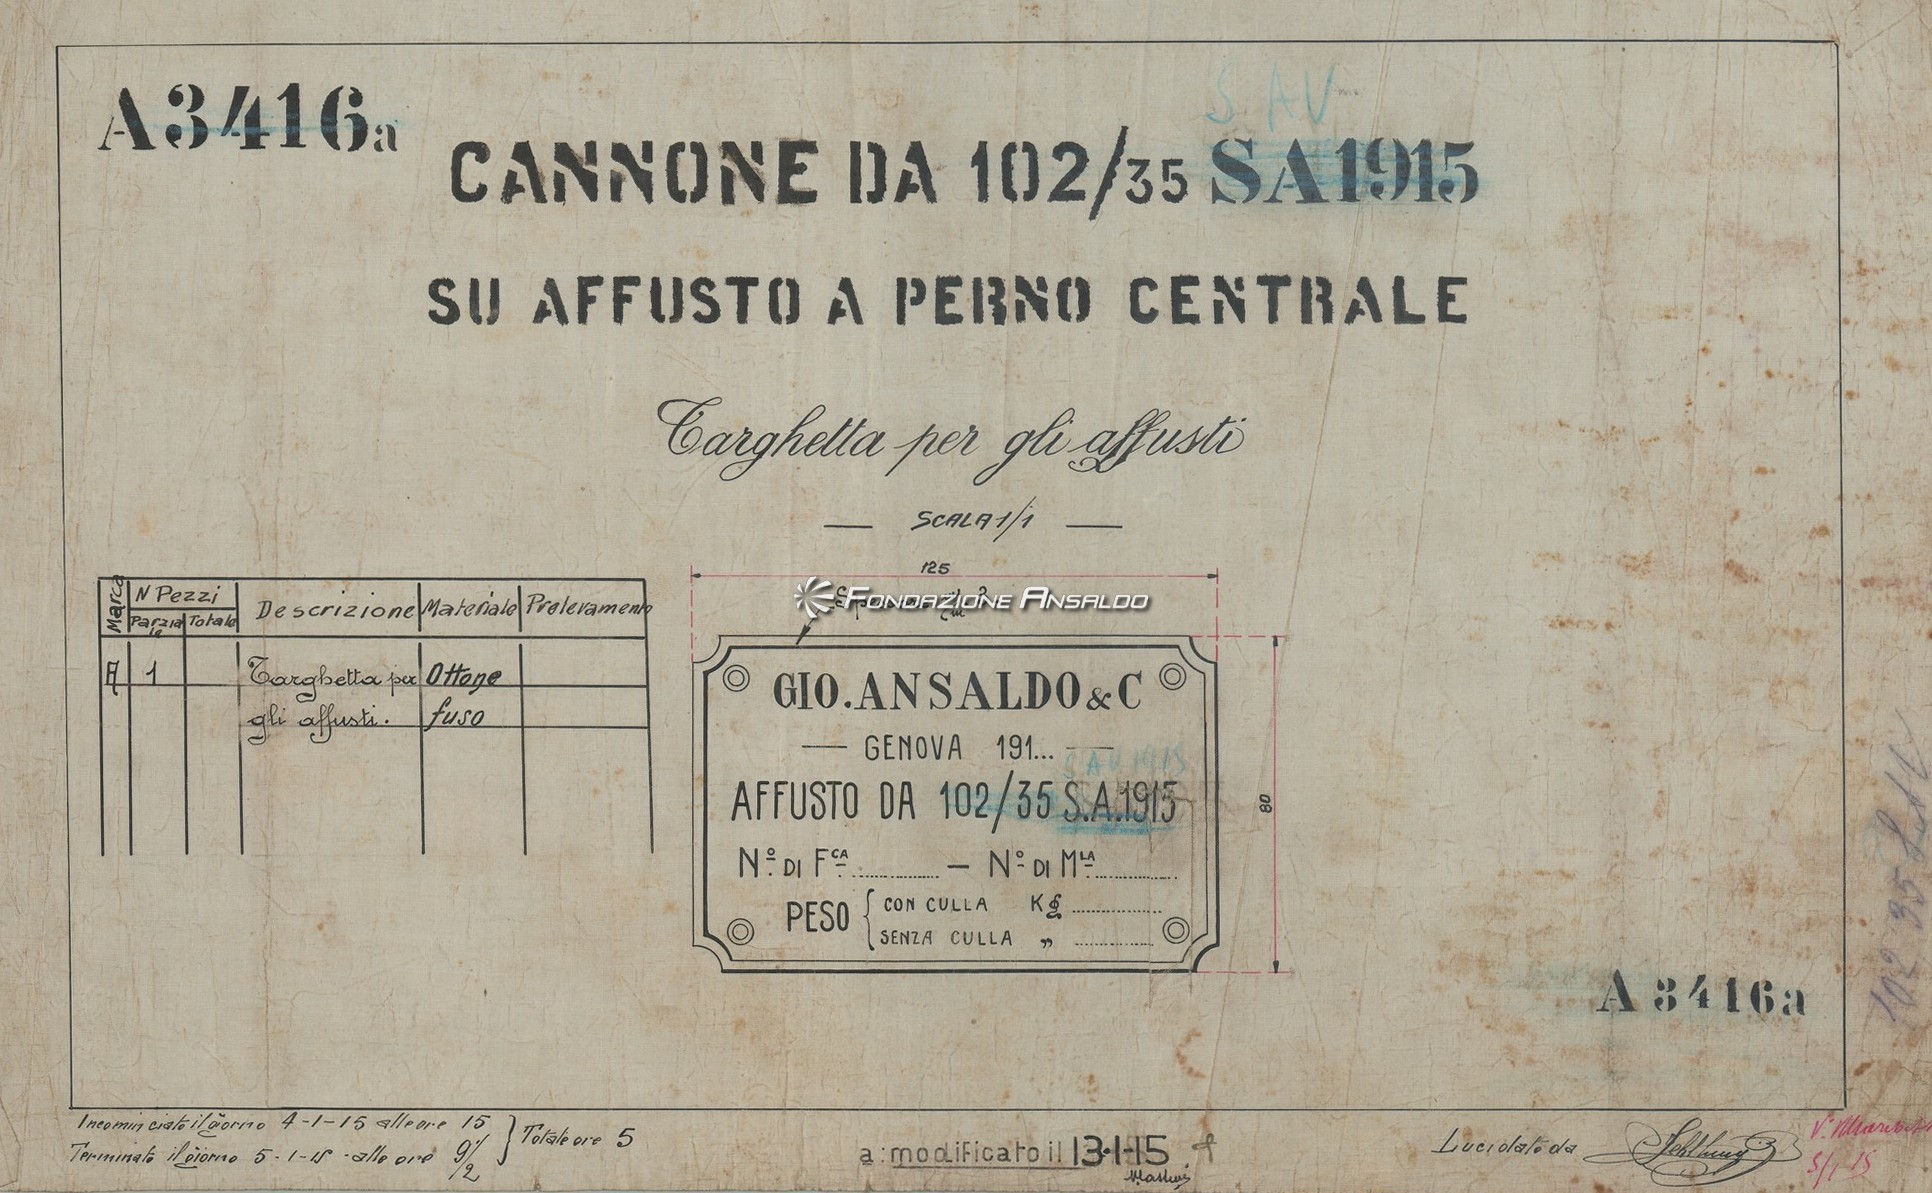 A3416a
S AV
CANNONE DA 102/35 SA1915
SU AFFUSTO A PERNO CENTRALE
Targhetta per gli affusti
SCALA 1/1
125
FONDAZIONE ANSALDO
Marca
N Pezzi
Parziale
Totale
Descrizione
Materiale
Prelevamento
A
1
Targhetta per
gli affusti.
Ottone
fuso
GIO. ANSALDO & C
GENOVA 191...
S AV 1915
AFFUSTO DA 102/35 S.A.1915
80
Nº DI Fᶜᴬ ............ — Nº DI Mᴸᴬ ............
PESO { CON CULLA Kg ............
SENZA CULLA „ ............
A 3416a
102 35 S.A.V
Incominciato il giorno 4-1-15 alle ore 15
Terminato il giorno 5-1-15 - alle ore 9 1/2
} Totale ore 5
a: modificato il 13-1-15
Lucidato da
5/1 15